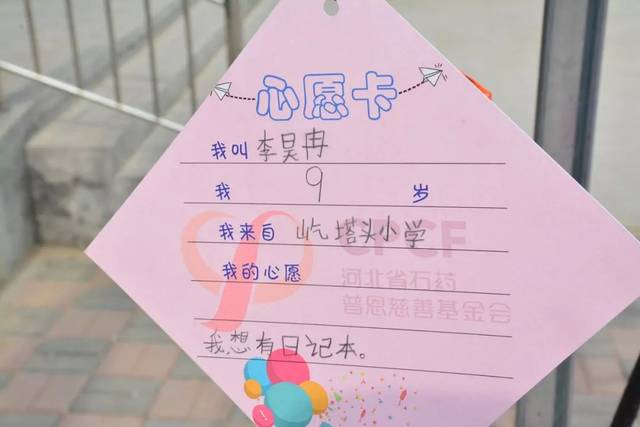 心愿卡
我叫 李昊冉
我 9 岁
我来自 屹塔头小学
我的心愿
CPCF
河北省石药
普恩慈善基金会
我想有日记本。